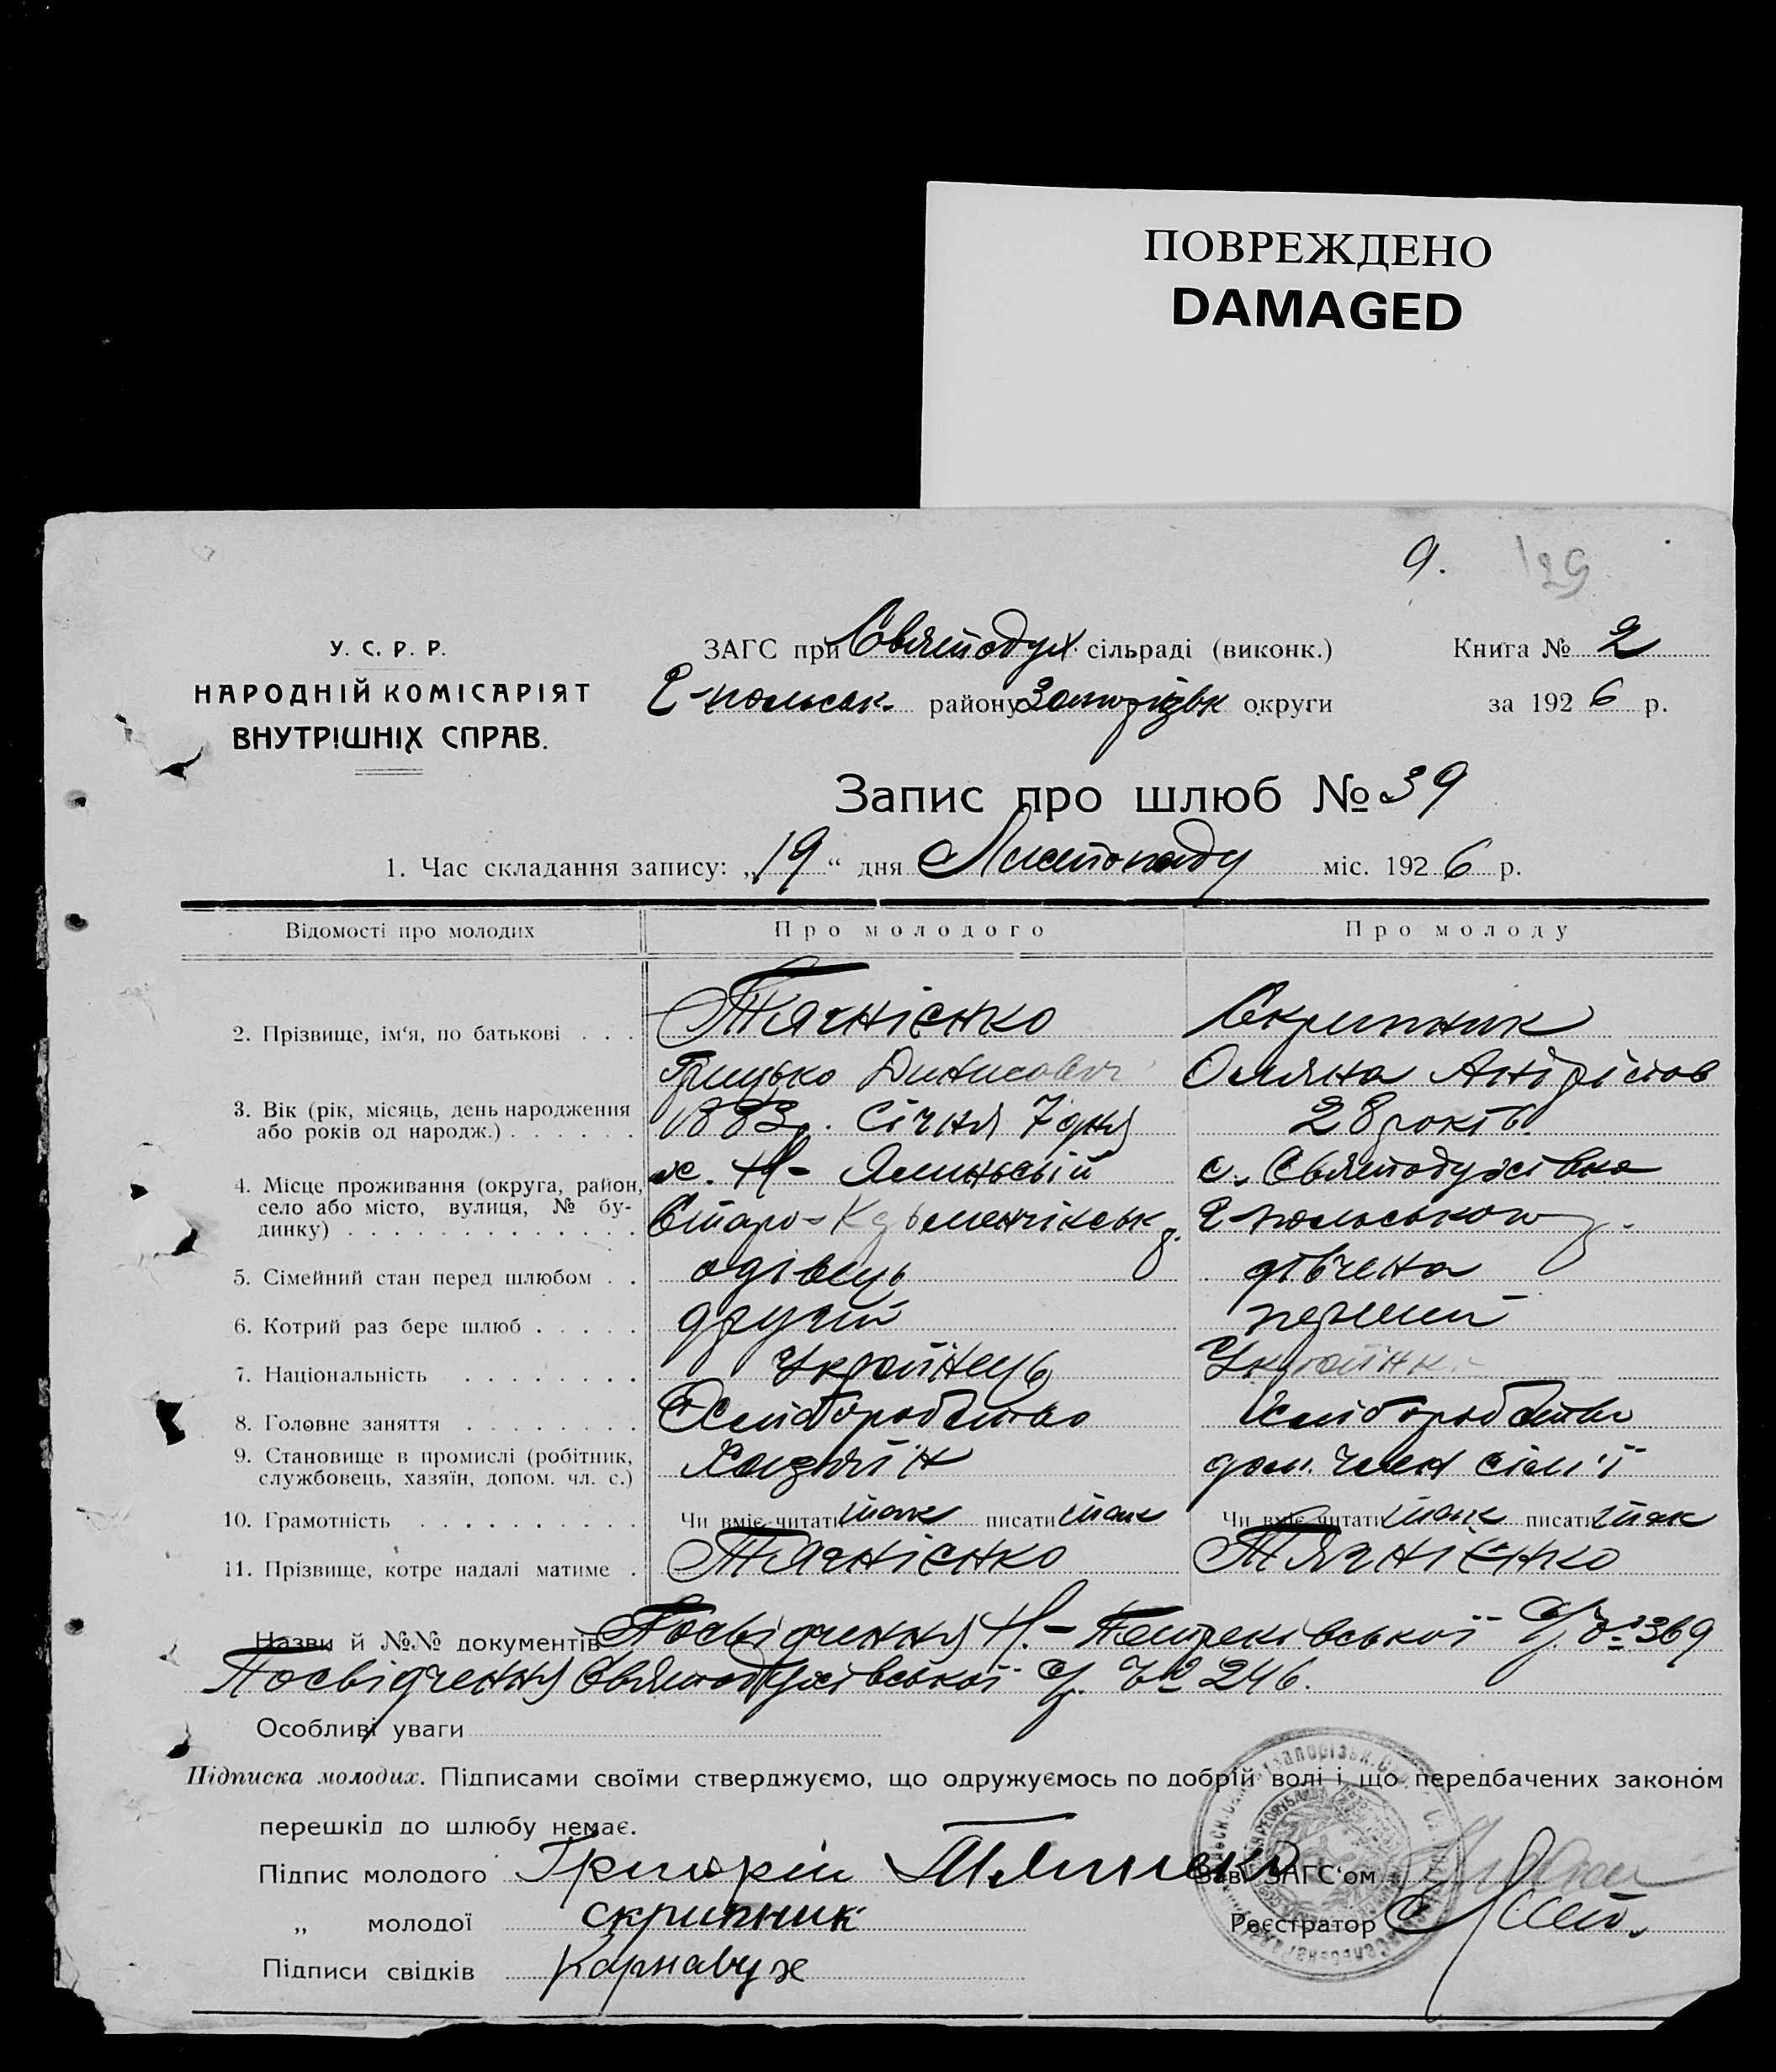 ПОВРЕЖДЕНО
DAMAGED
9. 129
У. С. Р. Р.
НАРОДНІЙ КОМІСАРІЯТ
ВНУТРІШНІХ СПРАВ.
ЗАГС при Святодух. сільраді (виконк.)
Г-польськ. району Запорізьк округи
Книга № 2
за 1926 р.
Запис про шлюб № 39
1. Час складання запису: „19“ дня Листопаду міс. 1926 р.
Відомості про молодих Про молодого Про молоду
2. Прізвище, ім‘я, по батькові . . . Тягнієнко Скрипник
Грицько Динисович Оляна Андрієтов
3. Вік (рік, місяць, день народження або років од народж.) . . . . . . 1883р. Січня 7 дня 28 років
4. Місце проживання (округа, район, село або місто, вулиця, № будинку) . . . . . . . . . . . . .
с. Святодухівка
Старо- Г-польського р.
5. Сімейний стан перед шлюбом . . одівець дівчена
6. Котрий раз бере шлюб . . . . . другий перший
7. Національність . . . . . . . . Українець Українк
8. Головне заняття . . . . . . . . Хліборобство Хліборобство
9. Становище в промислі (робітник, службовець, хазяїн, допом. чл. с.) Хазяїн дом. член сім'ї
10. Грамотність . . . . . . . . . . Чи вміє читати так писати так Чи вміє читати так писати так
11. Прізвище, котре надалі матиме . Тягнієнко Тягнієнко
Назви й №№ документів Посвідчення Н.- С/р № 369
Посвідчення Святодухівської с/р. № 246.
Особливі уваги
Підписка молодих. Підписами своїми стверджуємо, що одружуємось по добрій волі і що передбачених законом
перешкід до шлюбу немає.
Підпис молодого Григорій
Зав. ЗАГС‘ом
„ молодої скрипник
Реєстратор
Підписи свідків Карнавух